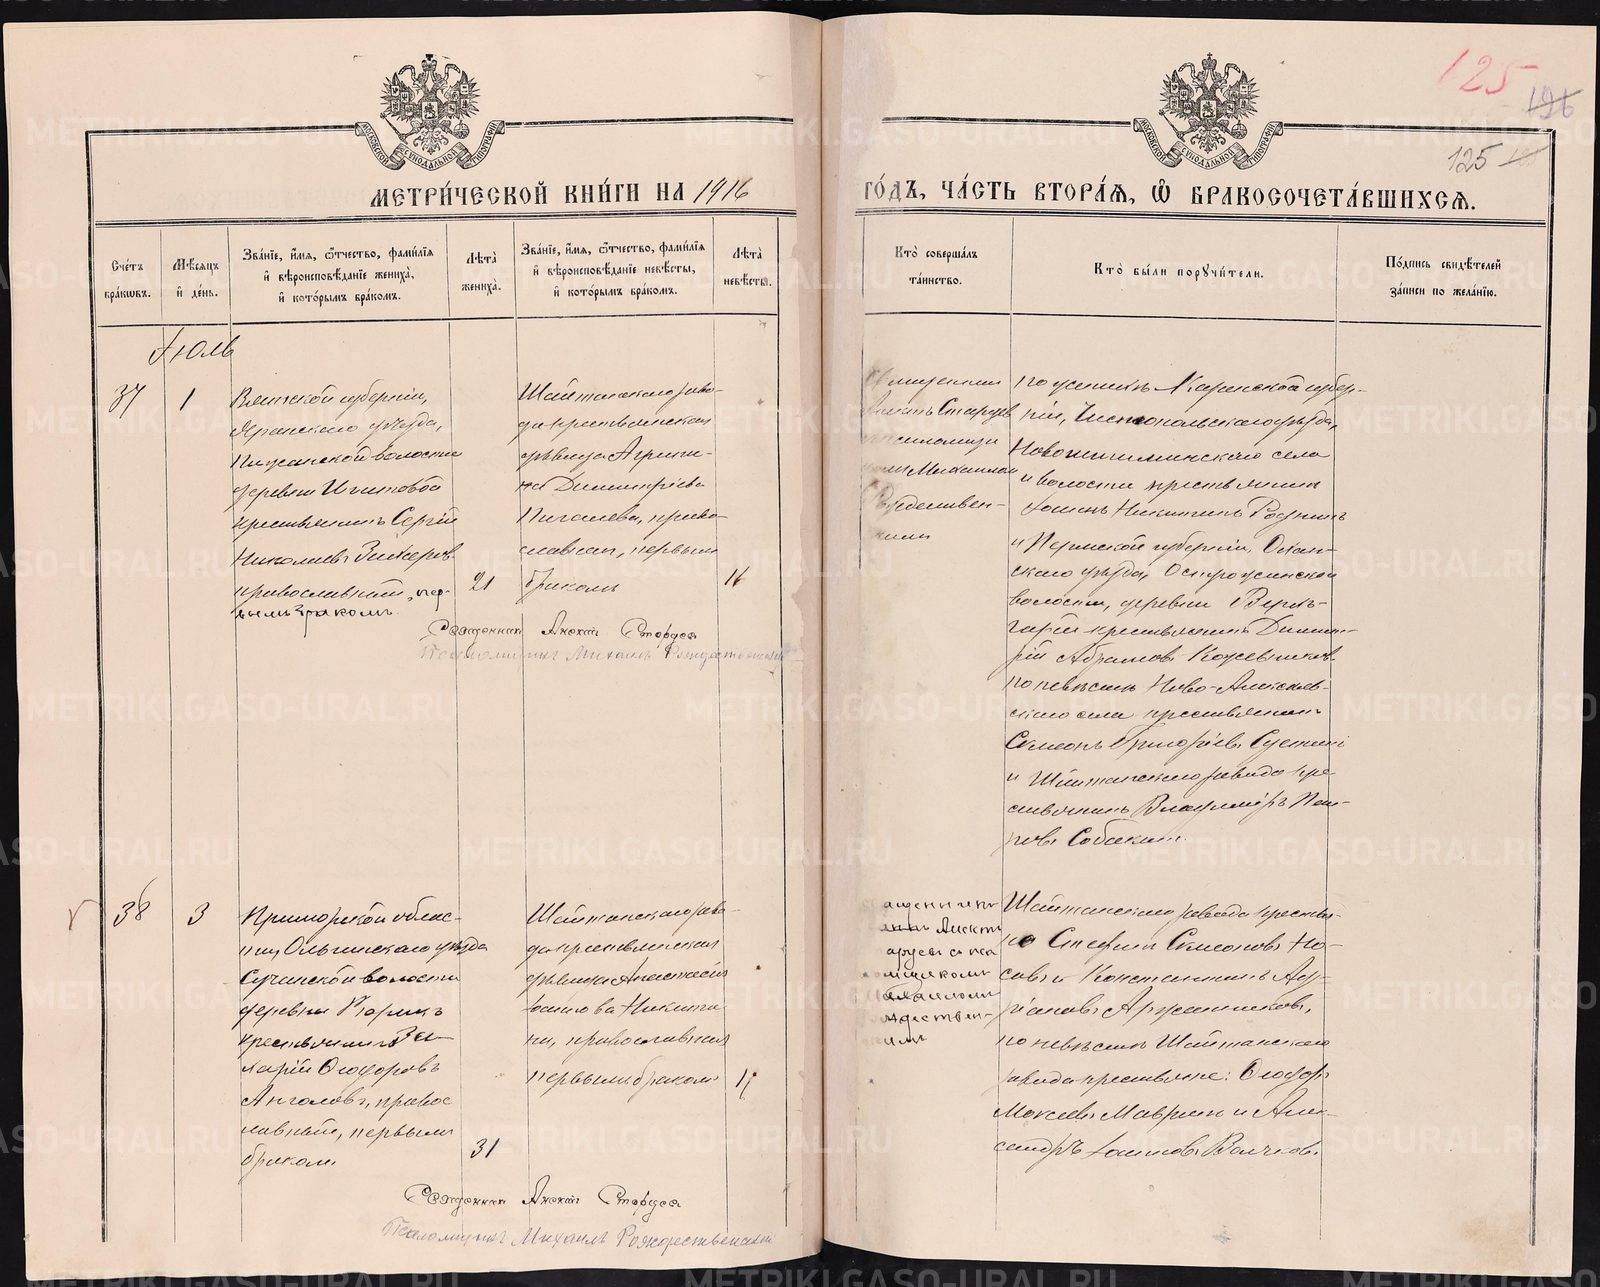 125
196
125
МОСКОВСКОЙ СѴНОДАЛЬНОЙ ТИПОГРАФІИ
МОСКОВСКОЙ СѴНОДАЛЬНОЙ ТИПОГРАФІИ
МЕТРИ́ЧЕСКОЙ КНИ́ГИ НА 1916
ГО́ДЪ, ЧА́СТЬ ВТОРА́Я, Ѽ БРАКОСОЧЕТА́ВШИХСѦ.
Сче́тъ бра́кѡвъ.
Мѣ́сяцъ и҆ де́нь.
Зва́нїе, и҆́мѧ, ѻ҆́тчество, фами́лїѧ и҆ вѣроисповѣ́данїе жениха̀, и҆ кото́рымъ бра́комъ.
Лѣта̀ жениха̀.
Зва́нїе, и҆́мѧ, ѻ҆́тчество, фами́лїѧ и҆ вѣроисповѣ́данїе невѣ́сты, и҆ кото́рымъ бра́комъ.
Лѣта̀ невѣ́сты.
Кто̀ соверша́лъ та́инство.
Кто̀ бы́ли порꙋчи́тели.
По́дпись свидѣ́телей за́писи по жела́нїю.
Іюль
37
1
Вятской губерніи,
Яранскаго уѣзда,
волости
деревни
крестьянинъ Сергій
Николаевъ
православный, пер-
вымъ бракомъ.
21
Шайтанскаго заво-
да крестьянская
дѣвица Агрипи-
на Димитріева
Пигалева, право-
славная, первымъ
бракомъ
16
Священникъ
Старцев
псаломщи
комъ Михаиломъ
Рождествен-
скимъ
по женихѣ Казанской губер-
ніи, Чистопольскаго уѣзда,
Новошешминскаго села
и волости крестьянинъ
Іоаннъ Никитинъ Родинъ
и Пермской губерніи, Охан-
скаго уѣзда, Острожинской
волости, деревни
крестьянинъ Димит-
рій Абрамовъ Кожевниковъ
по невѣстѣ Ново-Алексѣев-
скаго села крестьянинъ
Симеонъ Григорьевъ
и Шайтанскаго завода кре-
стьянинъ Владиміръ Пет-
ровъ Собакинъ.
Священникъ Старцев
Псаломщикъ Михаилъ Рождественскій
38
3
Приморской облас-
ти, Ольгинскаго уѣзда
Сучанской волости
деревни
крестьянинъ За-
харій Ѳеодоровъ
правос-
лавный, первымъ
бракомъ
31
Шайтанскаго заво-
да крестьянская
дѣвица Анастасія
Іоанова Никити-
на, православная
первымъ бракомъ
Шайтанскаго завода крестья-
не Стефанъ Симеоновъ Но-
совъ и Константинъ Ад-
ріановъ Аржанниковъ,
по невѣстѣ Шайтанскаго
завода крестьяне: Ѳеодоръ
Моксеевъ Мавринъ и Алек-
сандръ Іоанновъ Волчковъ
Священникъ Старцев
Псаломщикъ Михаилъ Рождественскій
METRIKI.GASO-URAL.RU